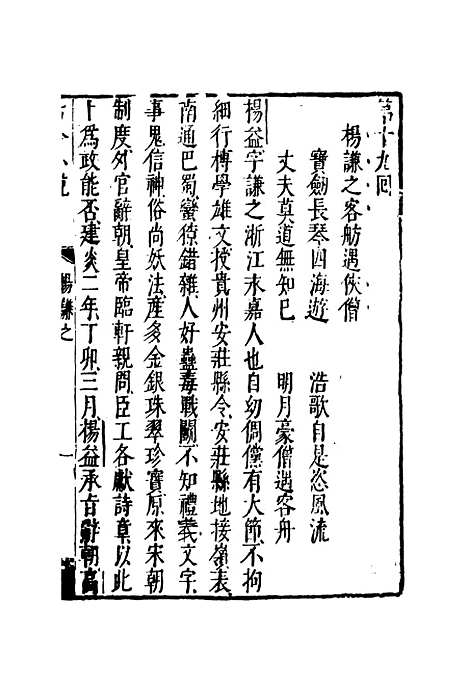 第十九回
楊謙之客舫遇俠僧
寶劍長琴四海遊　浩歌自是恣風流
丈夫莫道無知巳　明月豪僧遇客舟
楊益字謙之浙江永嘉人也自幼倜儻有大節不拘
細行博學雄文授貴州安莊縣令安莊縣地接嶺表
南通巴蜀蠻獠錯雜人好蠱毒戰鬭不知禮義文字
事鬼信神俗尚妖法產多金銀珠翠珍寶原來宋朝
制度外官辭朝皇帝臨軒親問臣工各獻詩章以此
卜為政能否建炎二年丁卯三月楊益承旨辭朝高
楊謙之
一